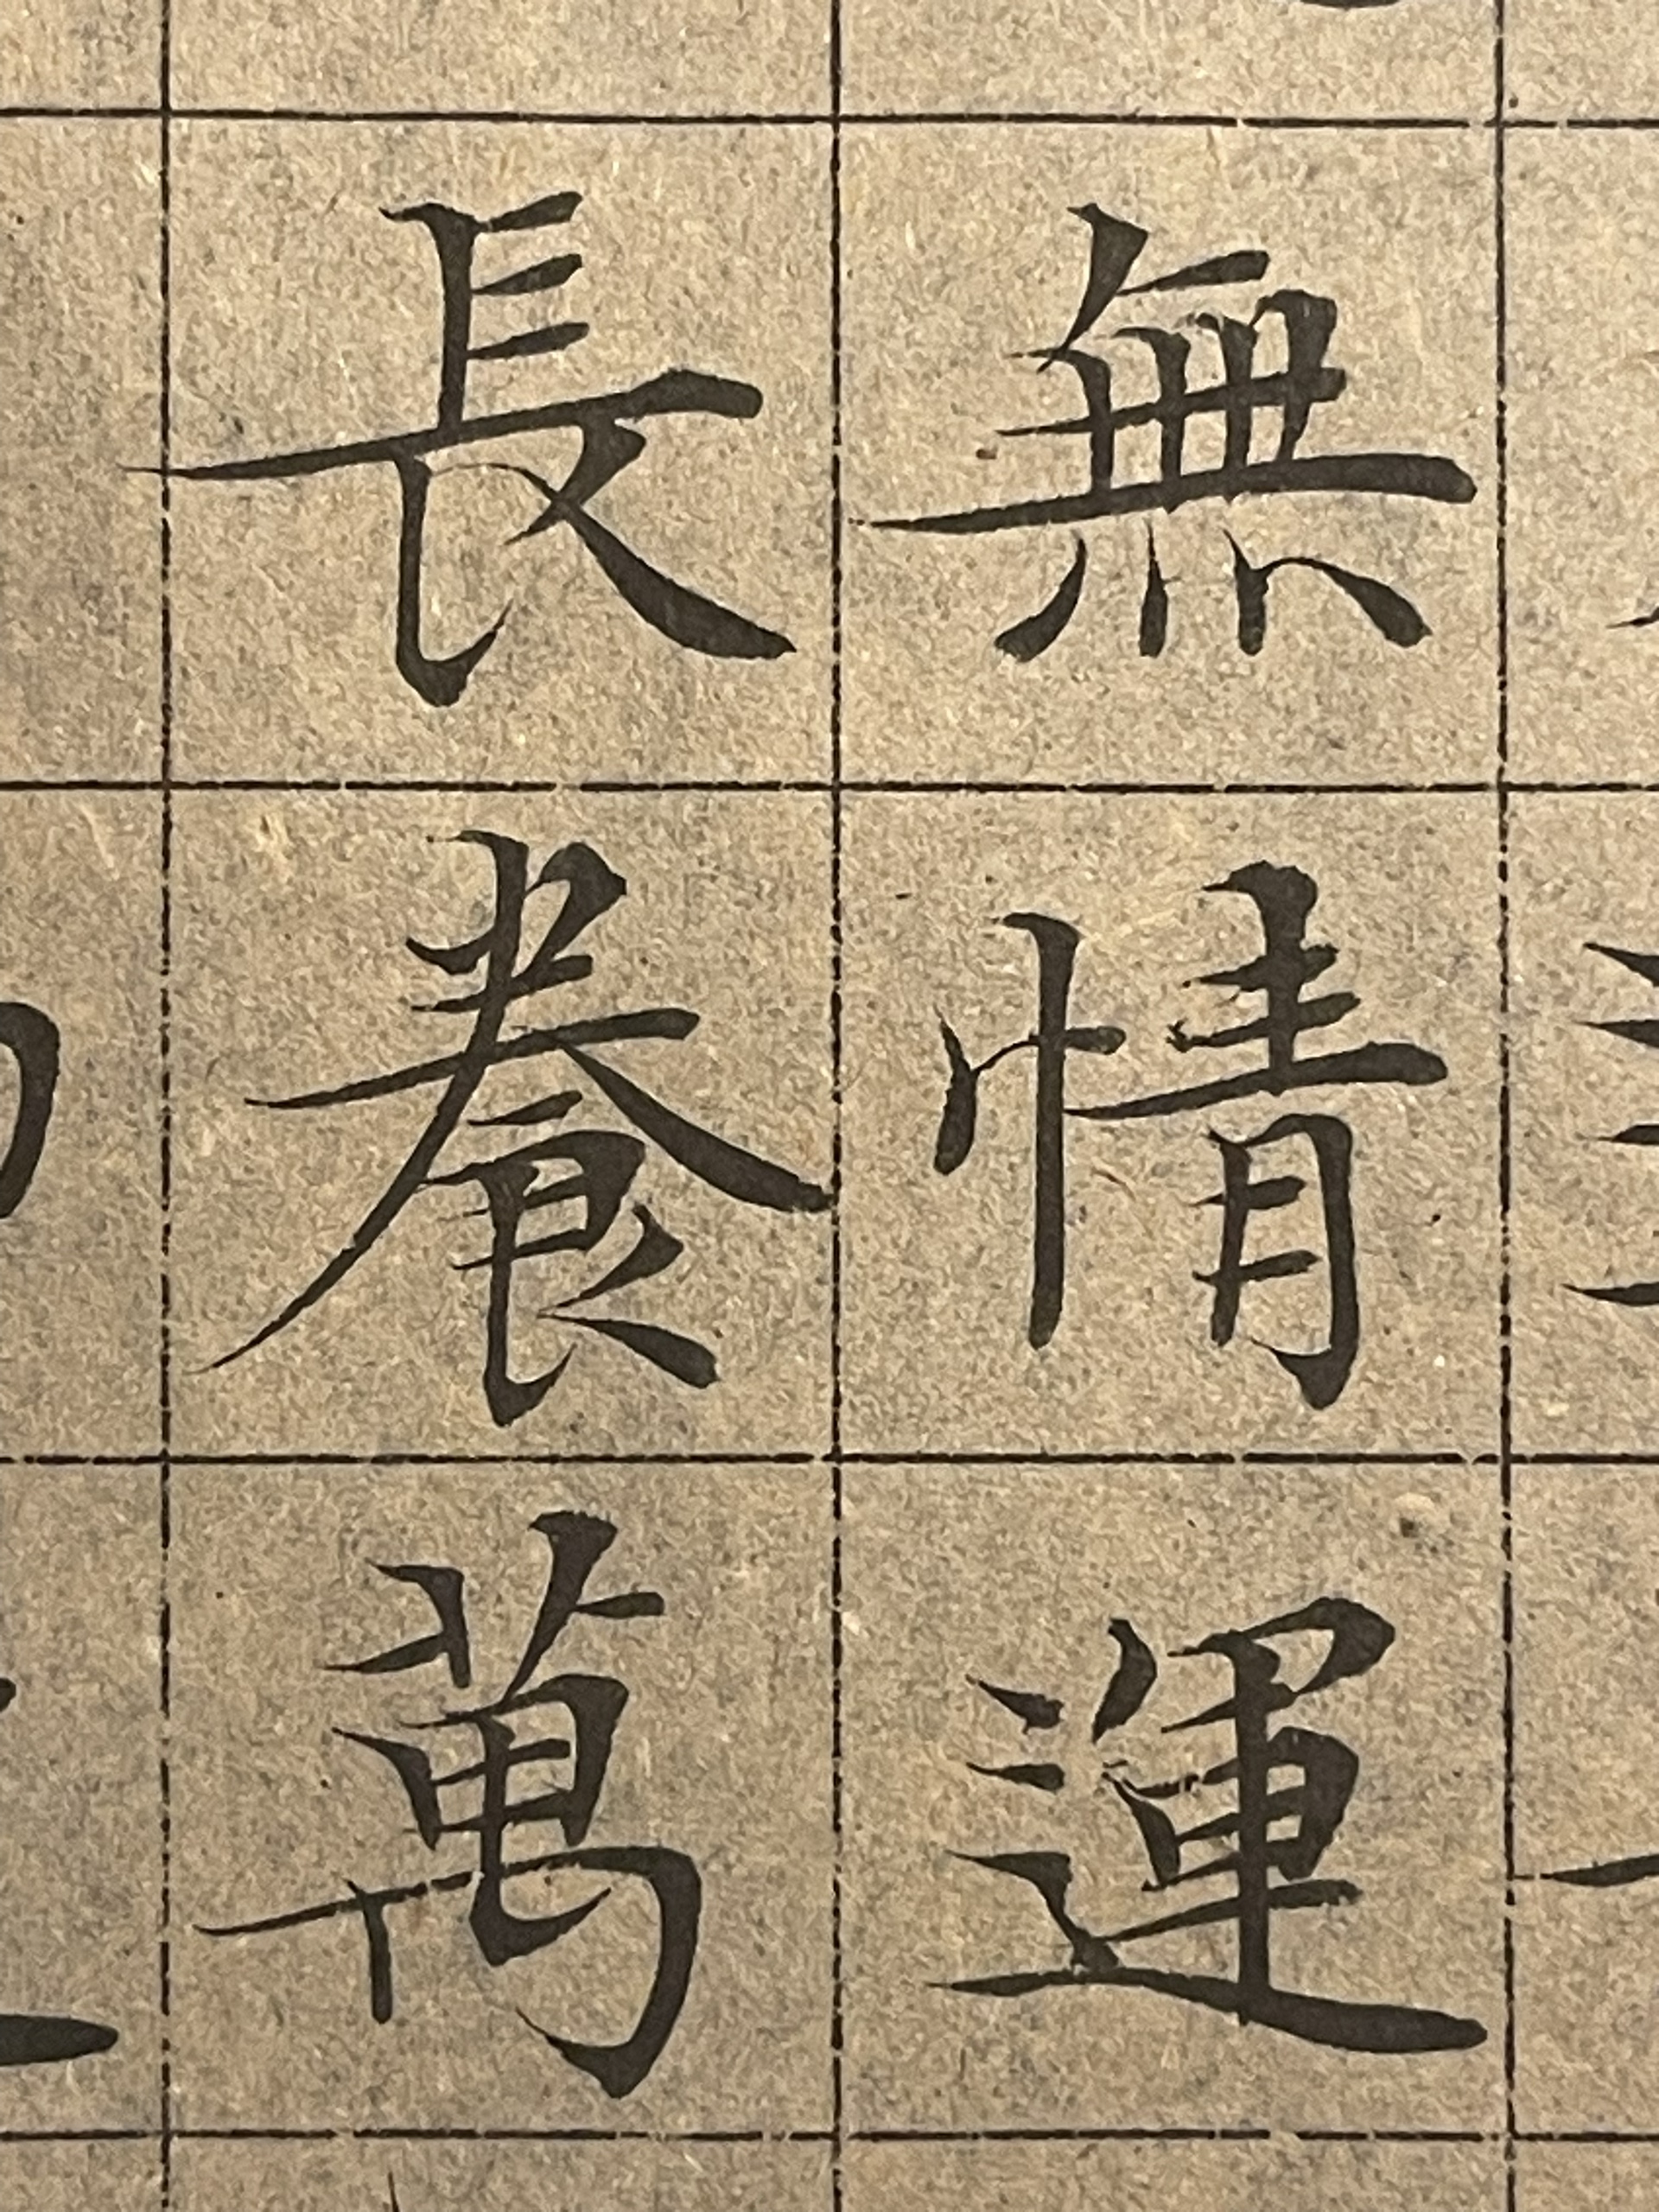 無情運
長養萬